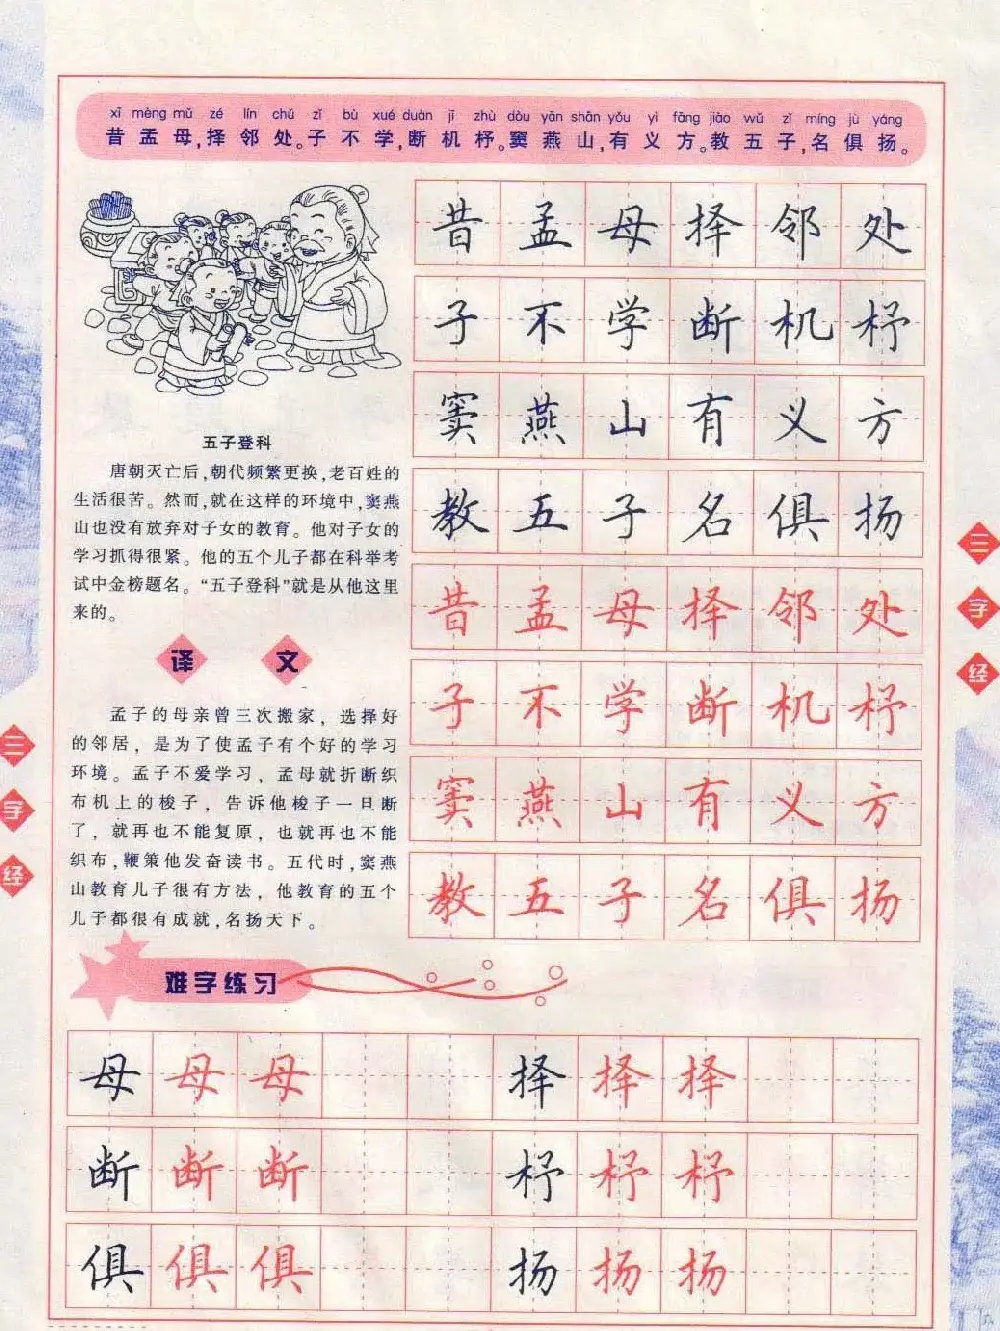 xī mèng mǔ zé lín chǔ zǐ bù xué duàn jī zhù dòu yān shān yǒu yì fāng jiào wǔ zǐ míng jù yáng
昔孟母,择邻处。子不学,断机杼。窦燕山,有义方。教五子,名俱扬。
昔孟母择邻处
子不学断机杼
窦燕山有义方
教五子名俱扬
昔孟母择邻处
子不学断机杼
窦燕山有义方
教五子名俱扬
五子登科
唐朝灭亡后,朝代频繁更换,老百姓的
生活很苦。然而,就在这样的环境中,窦燕
山也没有放弃对子女的教育。他对子女的
学习抓得很紧。他的五个儿子都在科举考
试中金榜题名。“五子登科”就是从他这里
来的。
译文
孟子的母亲曾三次搬家，选择好
的邻居，是为了使孟子有个好的学习
环境。孟子不爱学习，孟母就折断织
布机上的梭子，告诉他梭子一旦断
了，就再也不能复原，也就再也不能
织布,鞭策他发奋读书。五代时,窦燕
山教育儿子很有方法，他教育的五个
儿子都很有成就,名扬天下。
三字经
三字经
难字练习
母母母 择择择
断断断 杼杼杼
俱俱俱 扬扬扬